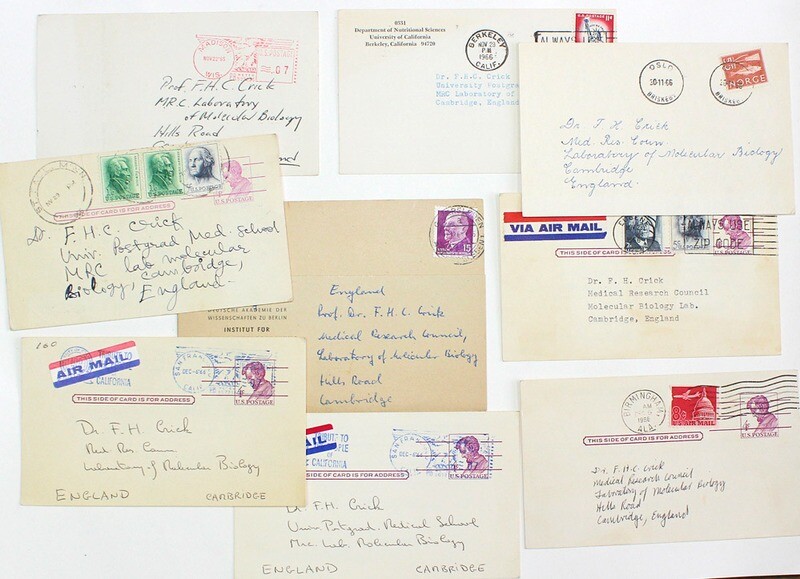 MADISON
U.S. POSTAGE
.07
WIS.
Prof. F.H.C. Crick
MRC Laboratory
of Molecular Biology
Hills Road
0351
Department of Nutritional Sciences
University of California
Berkeley, California 94720
BERKELEY
NOV 29
P M
1966
CALIF.
ALWAYS USE
11¢
Dr. F.H.C. Crick
University Postgrad
MRC Laboratory of
Cambridge, England
OSLO
30-11-66
BRISKEBY
NORGE
Dr. F. H. Crick
Med. Res. Coun.
Laboratory of Molecular Biology
Cambridge
England.
U.S. POSTAGE
THIS SIDE OF CARD IS FOR ADDRESS
U.S. POSTAGE
Dr. F.H.C. Crick
Univ. Postgrad Med. School
MRC lab molecular
Biology, Cambridge,
England.
15
DEUTSCHE AKADEMIE DER
WISSENSCHAFTEN ZU BERLIN
INSTITUT FÜR
England
Prof. Dr. F. H. C. Crick
Medical Research Council,
Laboratory of Molecular Biology
Hills Road
Cambridge
VIA AIR MAIL
ALWAYS USE
ZIP CODE
THIS SIDE OF CARD IS
U.S. POSTAGE
Dr. F. H. Crick
Medical Research Council
Molecular Biology Lab.
Cambridge, England
160
AIR MAIL
CALIFORNIA
SAN FRAN
DEC-6'66
CALIF.
THIS SIDE OF CARD IS FOR ADDRESS
4¢
U.S. POSTAGE
Dr. F. H. Crick
Med. Res. Coun.
Laboratory of Molecular Biology
ENGLAND CAMBRIDGE
MAIL
TRIBUTE TO
CALIFORNIA
SAN FRAN
DEC-6'66
SIDE OF CARD IS FOR ADDRESS
4¢
U.S. POSTAGE
Dr. F. H. Crick
Univ. Postgrad. Medical School
Mrc. Lab. Molecular Biology
ENGLAND CAMBRIDGE
BIRMINGHAM,
AM
1966
ALA.
8¢
US AIR MAIL
THIS SIDE OF CARD IS FOR ADDRESS
U.S. POSTAGE
Dr. F. H. C. Crick
Medical Research Council
Laboratory of Molecular Biology
Hills Road
Cambridge, England